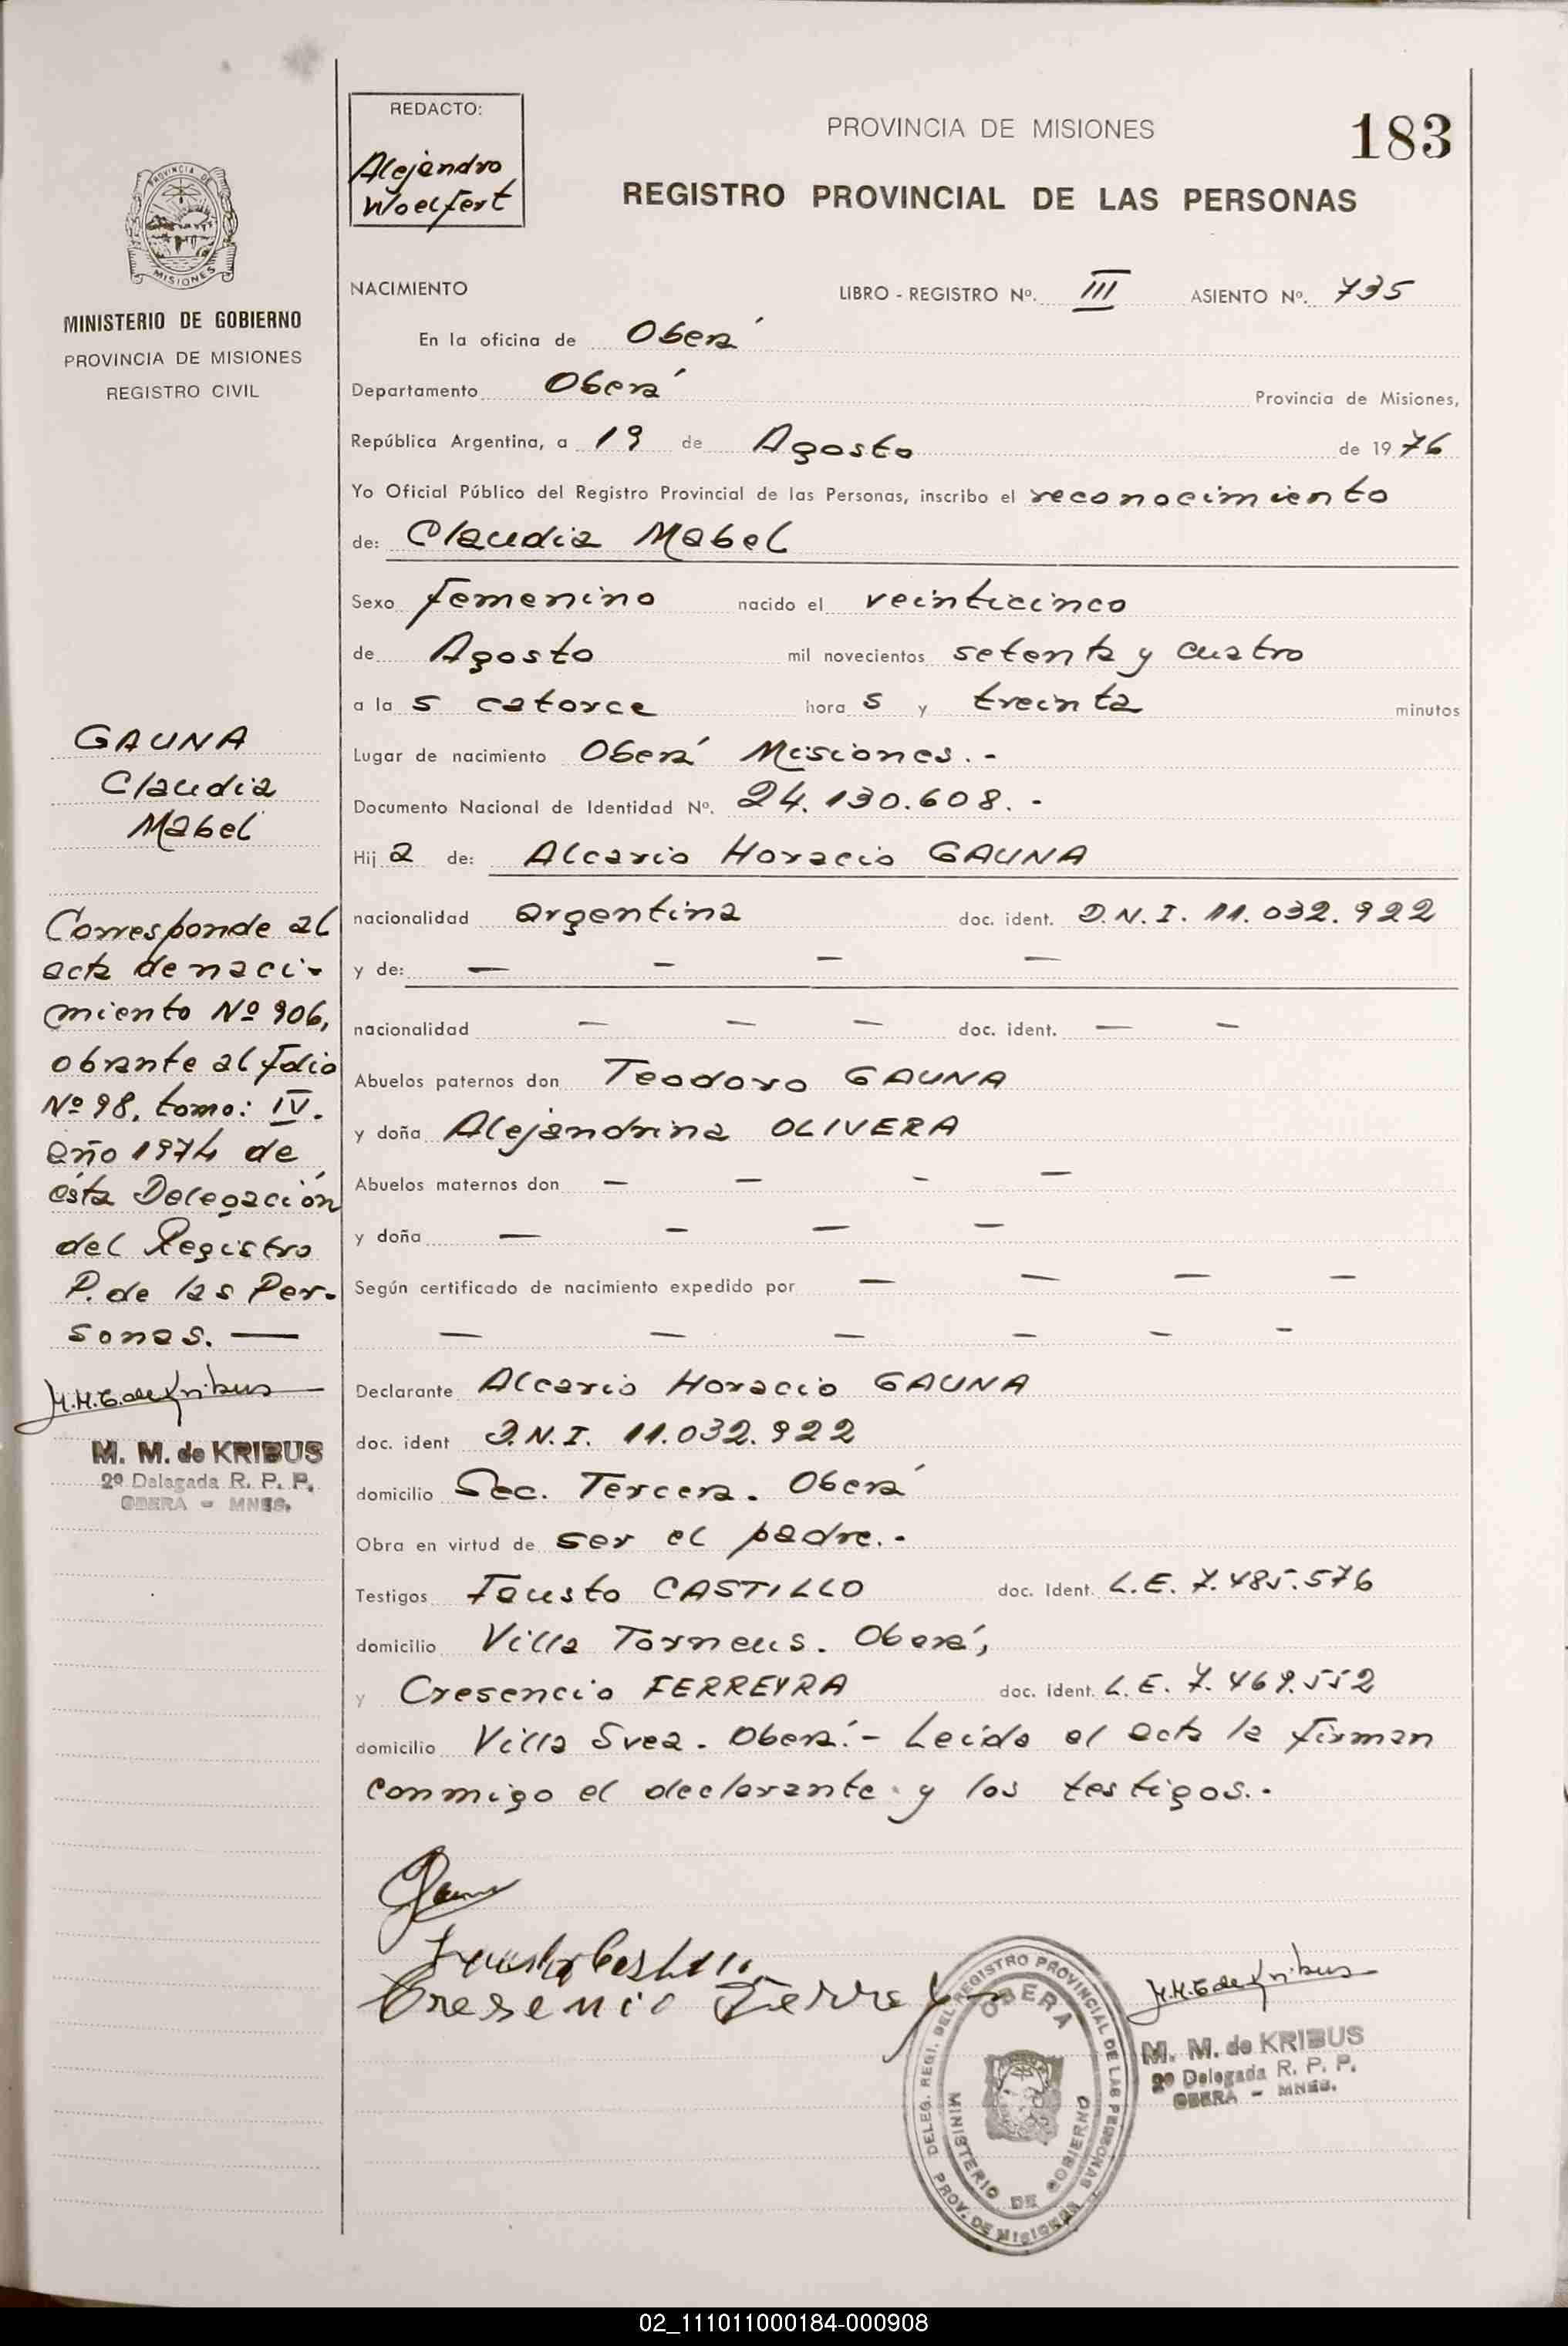 REDACTO:
Alejandro
Woelfert
PROVINCIA DE MISIONES
183
REGISTRO PROVINCIAL DE LAS PERSONAS
PROVINCIA DE
MISIONES
MINISTERIO DE GOBIERNO
PROVINCIA DE MISIONES
REGISTRO CIVIL
NACIMIENTO LIBRO - REGISTRO Nº. III ASIENTO Nº. 735
En la oficina de Oberá
Departamento Oberá Provincia de Misiones,
República Argentina, a 19 de Agosto de 1976
Yo Oficial Público del Registro Provincial de las Personas, inscribo el reconocimiento
de: Claudia Mabel
Sexo femenino nacido el veinticinco
de Agosto mil novecientos setenta y cuatro
a la s catorce hora s y treinta minutos
Lugar de nacimiento Oberá Misiones. -
Documento Nacional de Identidad Nº. 24.130.608. -
Hij a de: Alcario Horacio GAUNA
nacionalidad argentina doc. ident. D.N.I. 11.032.922
y de: — — — —
nacionalidad — — — doc. ident. — —
Abuelos paternos don Teodoro GAUNA
y doña Alejandrina OLIVERA
Abuelos maternos don — — - —
y doña — — — —
Según certificado de nacimiento expedido por — — — —
— — — — — —
Declarante Alcario Horacio GAUNA
doc. ident D.N.I. 11.032.922
domicilio Sec. Tercera. Oberá
Obra en virtud de ser el padre. -
Testigos Fausto CASTILLO doc. Ident. L.E. 7.485.576
domicilio Villa Torneus. Oberá,
y Cresencio FERREYRA doc. ident. L.E. 7.469.552
domicilio Villa Svea. Oberá. - Leída el acta la firman
conmigo el declarante y los testigos. -
GAUNA
Claudia
Mabel
Corresponde al
acta de naci-
miento Nº 906,
obrante al folio
Nº 98, tomo: IV.
año 1974 de
ésta Delegación
del Registro
P. de las Per-
sonas. —
M.M.G. de Kribus
M. M. de KRIBUS
2º Delegada R. P. P.
OBERA - MNES.
Fausto Castillo
Cresencio Ferreyra
DELEG. REGI. DEL REGISTRO PROVINCIAL DE LAS PERSONAS
OBERÁ
MINISTERIO DE GOBIERNO
PROV. DE MISIONES
M.M.G de Kribus
M. M. de KRIBUS
2º Delegada R. P. P.
OBERA - MNES.
02_111011000184-000908